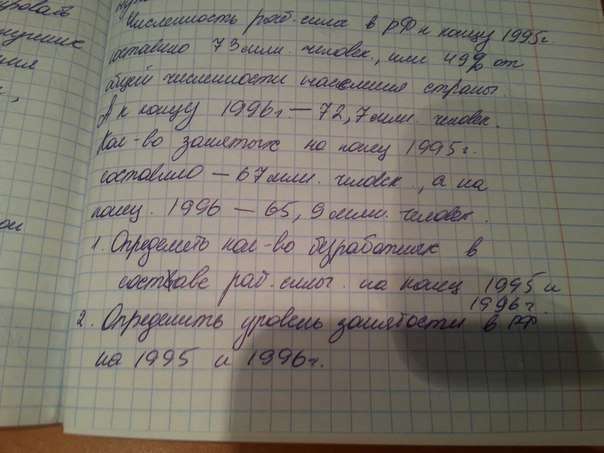 Численность раб. силы в РФ к концу 1995г.
составило 73 млн. человек, или 49% от
общей численности населения страны.
А к концу 1996г – 72,7 млн. человек.
Кол-во занятых на конец 1995г.
составило – 67 млн. человек, а на
конец. 1996 – 65,9 млн. человек.
1. Определить кол-во безработных в
составе раб. силы. на конец 1995 и
1996г.
2. Определить уровень занятости в РФ
на 1995 и 1996г.